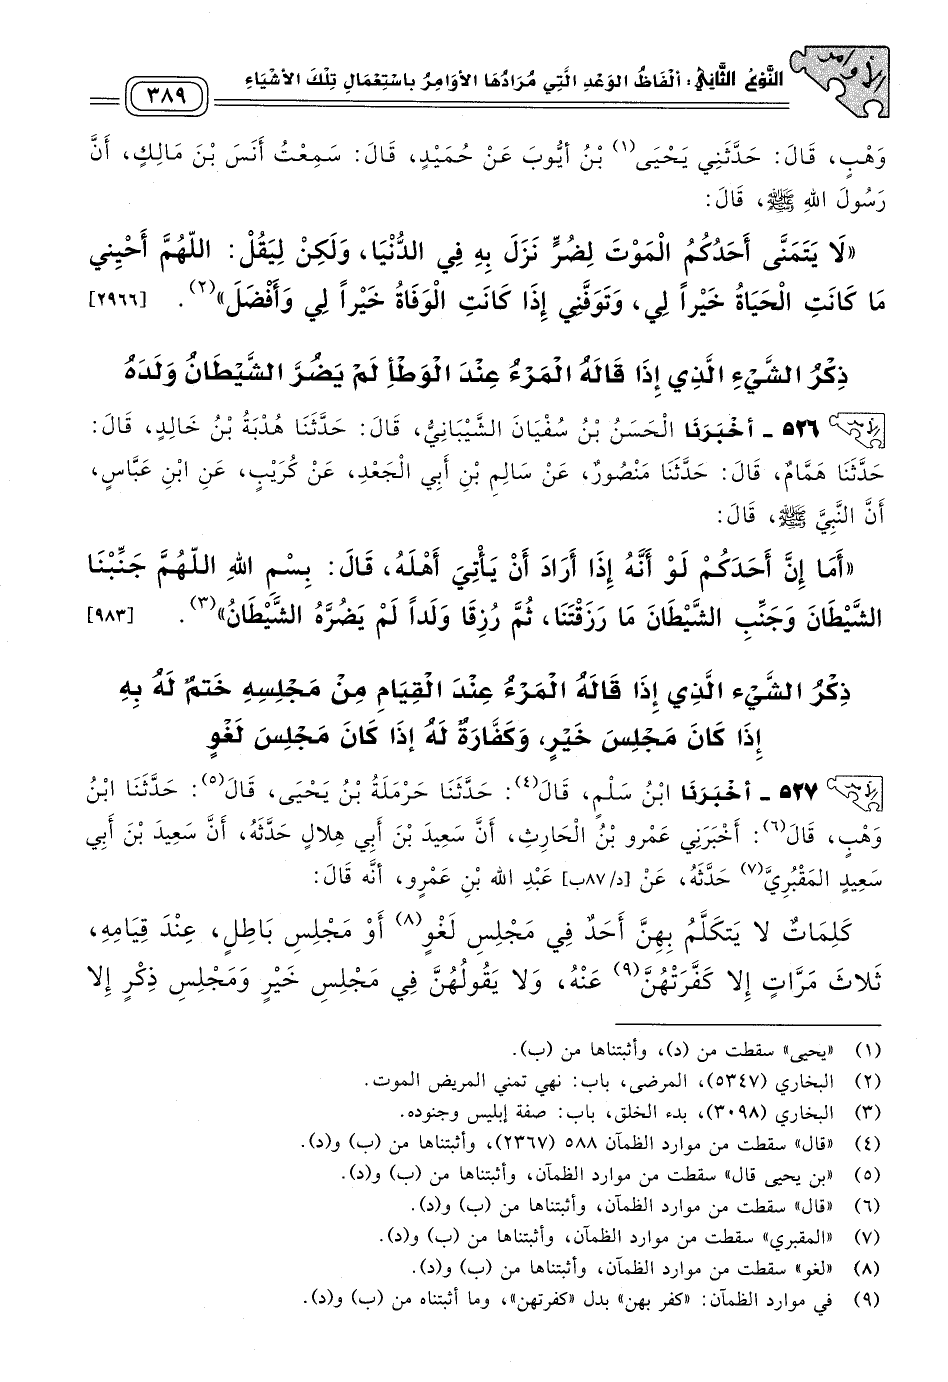 الأوامر
النَّوْعُ الثَّانِي: ألْفَاظُ الوَعْدِ الَّتِي مُرَادُهَا الأوَامِرُ بِاسْتِعْمَالِ تِلْكَ الأشْيَاءِ
٣٨٩
وَهْبٍ، قَالَ: حَدَّثَنِي يَحْيَى(١) بْنُ أيُّوبَ عَنْ حُمَيْدٍ، قَالَ: سَمِعْتُ أنَسَ بْنَ مَالِكٍ، أنَّ
رَسُولَ اللهِ ﷺ، قَالَ:
«لَا يَتَمَنَّى أَحَدُكُمُ الْمَوْتَ لِضُرٍّ نَزَلَ بِهِ فِي الدُّنْيَا، وَلَكِنْ لِيَقُلْ: اللّهُمَّ أَحْيِنِي
مَا كَانَتِ الْحَيَاةُ خَيْراً لِي، وَتَوَفَّنِي إِذَا كَانَتِ الْوَفَاةُ خَيْراً لِي وَأَفْضَلَ»(٢). [٢٩٦٦]
ذِكْرُ الشَّيْءِ الَّذِي إِذَا قَالَهُ الْمَرْءُ عِنْدَ الْوَطْأِ لَمْ يَضُرَّ الشَّيْطَانُ وَلَدَهُ
٥٢٦ - أخْبَرَنَا الْحَسَنُ بْنُ سُفْيَانَ الشَّيْبَانِيُّ، قَالَ: حَدَّثَنَا هُدْبَةُ بْنُ خَالِدٍ، قَالَ:
حَدَّثَنَا هَمَّامٌ، قَالَ: حَدَّثَنَا مَنْصُورٌ، عَنْ سَالِمِ بْنِ أبِي الْجَعْدِ، عَنْ كُرَيْبٍ، عَنِ ابْنِ عَبَّاسٍ،
أنَّ النَّبِيَّ ﷺ، قَالَ:
«أَمَا إِنَّ أَحَدَكُمْ لَوْ أنَّهُ إذَا أَرَادَ أنْ يَأْتِيَ أهْلَهُ، قَالَ: بِسْمِ اللهِ اللّهُمَّ جَنِّبْنَا
الشَّيْطَانَ وَجَنِّبِ الشَّيْطَانَ مَا رَزَقْتَنَا، ثُمَّ رُزِقَا وَلَداً لَمْ يَضُرَّهُ الشَّيْطَانُ»(٣). [٩٨٣]
ذِكْرُ الشَّيْءِ الَّذِي إِذَا قَالَهُ الْمَرْءُ عِنْدَ الْقِيَامِ مِنْ مَجْلِسِهِ خَتَمَ لَهُ بِهِ
إِذَا كَانَ مَجْلِسَ خَيْرٍ، وَكَفَّارَةٌ لَهُ إذَا كَانَ مَجْلِسَ لَغْوٍ
٥٢٧ - أخْبَرَنَا ابْنُ سَلْمٍ، قَالَ(٤): حَدَّثَنَا حَرْمَلَةُ بْنُ يَحْيَى، قَالَ(٥): حَدَّثَنَا ابْنُ
وَهْبٍ، قَالَ(٦): أَخْبَرَنِي عَمْرو بْنُ الْحَارِثِ، أنَّ سَعِيدَ بْنَ أبِي هِلالٍ حَدَّثَهُ، أنَّ سَعِيدَ بْنَ أبِي
سَعِيدٍ المَقْبُرِيَّ(٧) حَدَّثَهُ، عَنْ [د/٨٧ب] عَبْدِ الله بْنِ عَمْرٍو، أنَّه قَالَ:
كَلِمَاتٌ لا يَتَكَلَّمُ بِهِنَّ أَحَدٌ فِي مَجْلِسِ لَغْوٍ(٨) أوْ مَجْلِسِ بَاطِلٍ، عِنْدَ قِيَامِهِ،
ثَلاثَ مَرَّاتٍ إلا كَفَّرَتْهُنَّ(٩) عَنْهُ، وَلا يَقُولُهُنَّ فِي مَجْلِسِ خَيْرٍ وَمَجْلِسِ ذِكْرٍ إلا
(١) «يحيى» سقطت من (د)، وأثبتناها من (ب).
(٢) البخاري (٥٣٤٧)، المرضى، باب: نهي تمني المريض الموت.
(٣) البخاري (٣٠٩٨)، بدء الخلق، باب: صفة إبليس وجنوده.
(٤) «قال» سقطت من موارد الظمآن ٥٨٨ (٢٣٦٧)، وأثبتناها من (ب) و(د).
(٥) «بن يحيى قال» سقطت من موارد الظمآن، وأثبتناها من (ب) و(د).
(٦) «قال» سقطت من موارد الظمآن، وأثبتناها من (ب) و(د).
(٧) «المقبري» سقطت من موارد الظمآن، وأثبتناها من (ب) و(د).
(٨) «لغو» سقطت من موارد الظمآن، وأثبتناها من (ب) و(د).
(٩) في موارد الظمآن: «كفر بهن» بدل «كفرتهن»، وما أثبتناه من (ب) و(د).